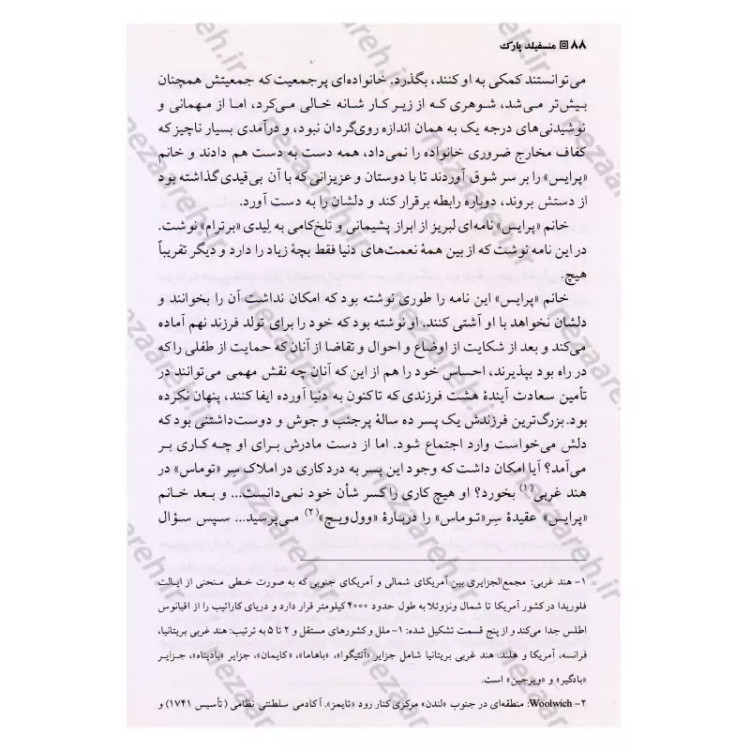 ۸۸ منسفیلد پارک
می‌توانستند کمکی به او کنند، بگذرد. خانواده‌ای پرجمعیت که جمعیتش همچنان
بیش‌تر می‌شد، شوهری که از زیر کار شانه خالی می‌کرد، اما از مهمانی و
نوشیدنی‌های درجه یک به همان اندازه روی‌گردان نبود، و درآمدی بسیار ناچیز که
کفاف مخارج ضروری خانواده را نمی‌داد، همه دست به دست هم دادند و خانم
«پرایس» را بر سر شوق آوردند تا با دوستان و عزیزانی که با آن بی‌قیدی گذاشته بود
از دستش بروند، دوباره رابطه برقرار کند و دلشان را به دست آورد.
خانم «پرایس» نامه‌ای لبریز از ابراز پشیمانی و تلخ‌کامی به لِیدی «برترام» نوشت.
در این نامه نوشت که از بین همهٔ نعمت‌های دنیا فقط بچهٔ زیاد را دارد و دیگر تقریباً
هیچ.
خانم «پرایس» این نامه را طوری نوشته بود که امکان نداشت آن را بخوانند و
دلشان نخواهد با او آشتی کنند. او نوشته بود که خود را برای تولد فرزند نهم آماده
می‌کند و بعد از شکایت از اوضاع و احوال و تقاضا از آنان که حمایت از طفلی را که
در راه بود بپذیرند، احساس خود را هم از این که آنان چه نقش مهمی می‌توانند در
تأمین سعادت آیندهٔ هشت فرزندی که تاکنون به دنیا آورده ایفا کنند، پنهان نکرده
بود. بزرگ‌ترین فرزندش یک پسر ده سالهٔ پرجنب و جوش و دوست‌داشتنی بود که
دلش می‌خواست وارد اجتماع شود. اما از دست مادرش برای او چه کاری بر
می‌آمد؟ آیا امکان داشت که وجود این پسر به درد کاری در املاک سِر «توماس» در
هند غربی(۱) بخورد؟ او هیچ کاری را کسر شأن خود نمی‌دانست... و بعد خانم
«پرایس» عقیدهٔ سِر«توماس» را دربارهٔ «وول‌ویچ»(۲) می‌پرسید... سپس سؤال
۱- هند غربی: مجمع‌الجزایری بین آمریکای شمالی و آمریکای جنوبی که به صورت خطی منحنی از ایالت
فلوریدا در کشور آمریکا تا شمال ونزوئلا به طول حدود ۴۰۰۰ کیلومتر قرار دارد و دریای کارائیب را از اقیانوس
اطلس جدا می‌کند و از پنج قسمت تشکیل شده: ۱- ملل و کشورهای مستقل و ۲ تا ۵ به ترتیب: هند غربی بریتانیا،
فرانسه، آمریکا و هلند. هند غربی بریتانیا شامل جزایر «آنتیگوا»، «باهاما»، «کایمان»، جزایر «بادپناه»، جزایر
«بادگیر» و «ویرجین» است.
۲- Woolwich: منطقه‌ای در جنوب «لندن» مرکزی کنار رود «تایمز». آکادمی سلطنتی نظامی (تأسیس ۱۷۴۱) و
nezaareh.ir